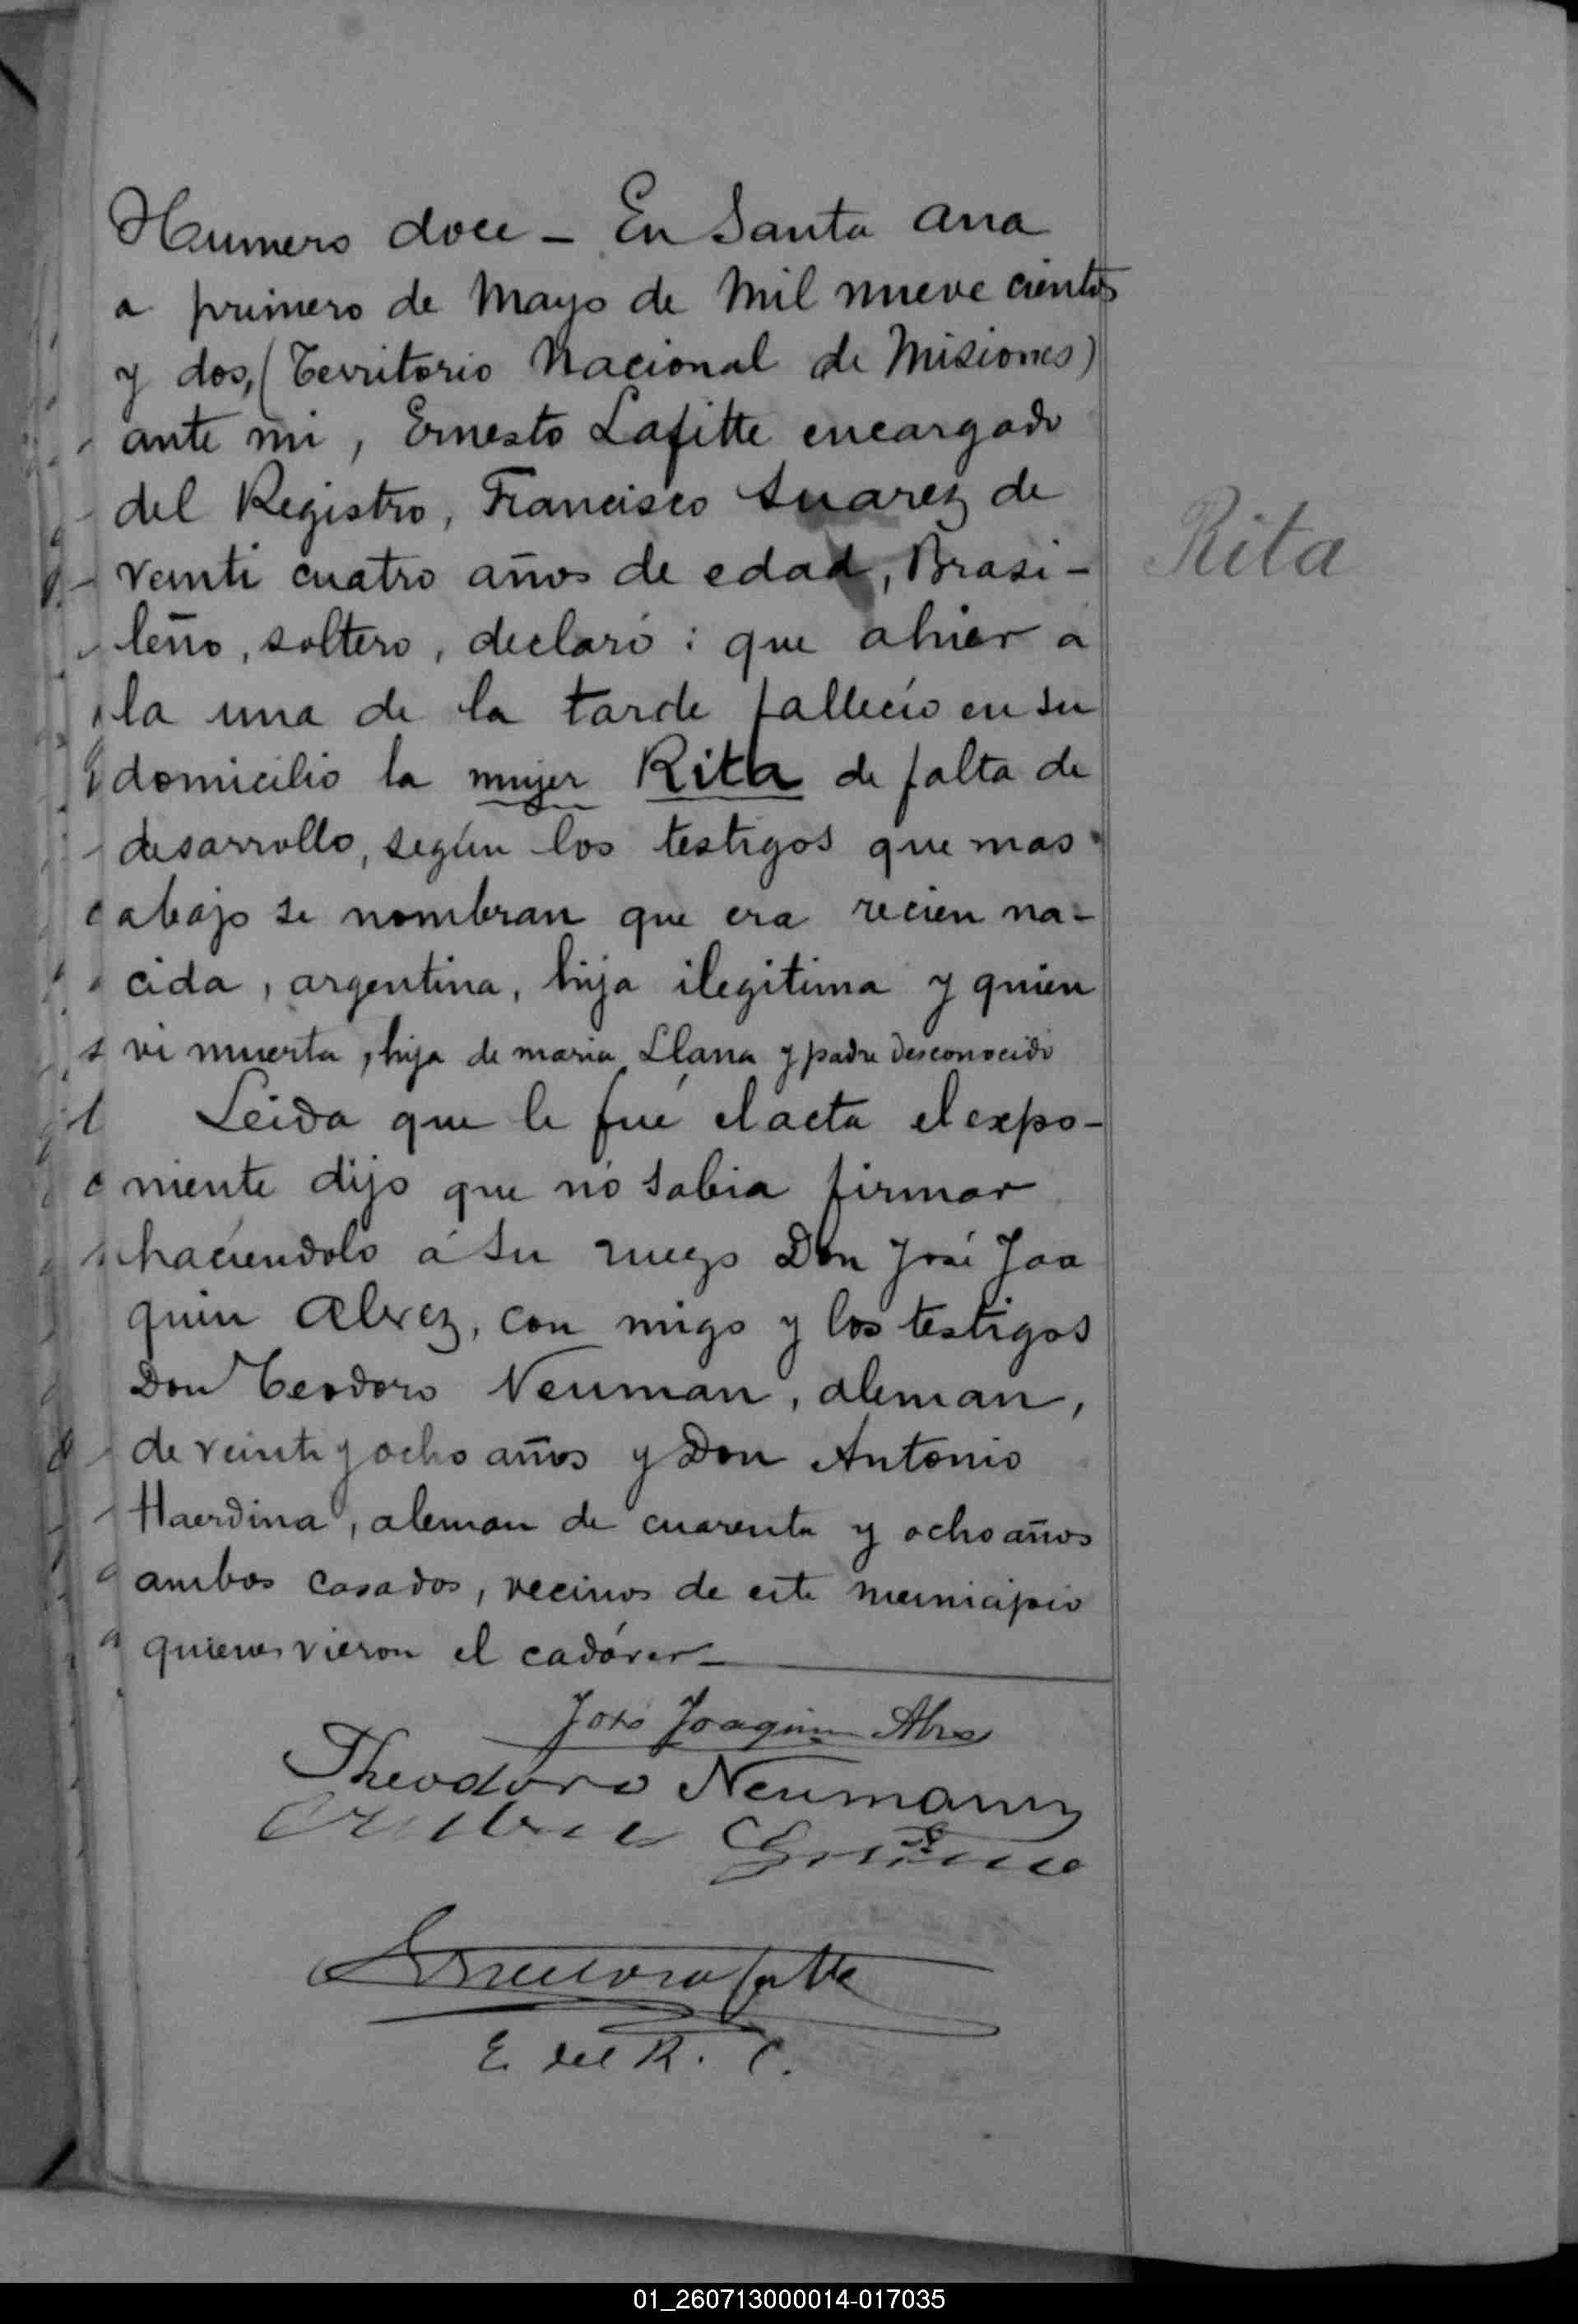 Numero doce - En Santa Ana
a primero de Mayo de Mil nueve cientos
y dos, (Territorio Nacional de Misiones)
ante mi, Ernesto Lafitte encargado
del Registro, Francisco Suarez de
veinti cuatro años de edad, Brasi-
leño, soltero, declaró: que ahier a
la una de la tarde falleció en su
domicilio la mujer Rita de falta de
desarrollo, según los testigos que mas
abajo se nombran que era recien na-
cida, argentina, hija ilegitima y quien
vi muerta, hija de maria Llana y padre desconocido
Leida que le fué el acta el expo-
niente dijo que no sabia firmar
haciendolo á su ruego Don José Joa
quin Alvez, con migo y los testigos
Don Teodoro Neuman, aleman,
de veinte y ocho años y Don Antonio
Haerdina, aleman de cuarenta y ocho años
ambos casados, vecinos de este municipio
quienes vieron el cadáver
Rita
José Joaquim Alves
Theodoro Neumann
E. del R. C.
01_260713000014-017035